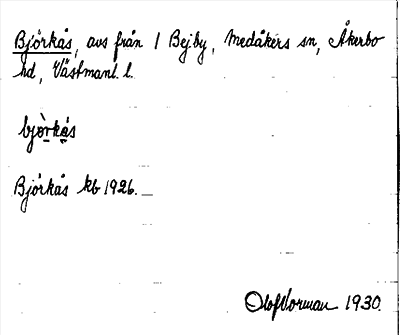 Björkås, avs från 1 Bejby, Medåkers sn, Åkerbo
hd, Västmanl. l.
bjò̱rkå̱s
Björkås kb 1926.
Olof Norman 1930.